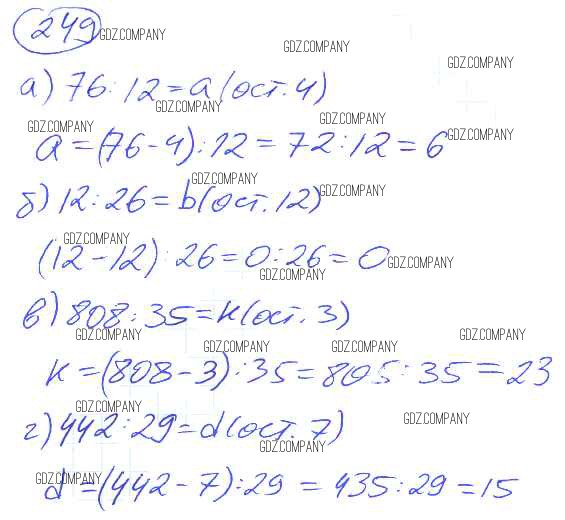 249 GDZ.COMPANY
GDZ.COMPANY
GDZ.COMPANY
а) 76 : 12 = а (ост. 4)
GDZ.COMPANY
GDZ.COMPANY GDZ.COMPANY
а = (76 - 4) : 12 = 72 : 12 = 6 GDZ.COMPANY
GDZ.COMPANY
б) 12 : 26 = b (ост. 12) GDZ.COMPANY
GDZ.COMPANY
(12 - 12) : 26 = 0 : 26 = 0 GDZ.COMPANY
GDZ.COMPANY
в) 808 : 35 = к (ост. 3)
GDZ.COMPANY GDZ.COMPANY
GDZ.COMPANY GDZ.COMPANY
к = (808 - 3) : 35 = 805 : 35 = 23
GDZ.COMPANY GDZ.COMPANY
г) 442 : 29 = d (ост. 7)
GDZ.COMPANY
GDZ.COMPANY
d = (442 - 7) : 29 = 435 : 29 = 15